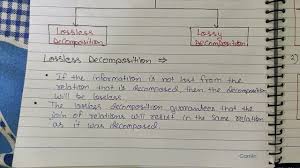 Lossless
Decomposition
Lossy
Decomposition
Lossless Decomposition ⇒
• If the information is not lost from the
relation that is decomposed then the decomposition
will be lossless.
• The lossless decomposition guarantees that the
join of relations will result in the same relation
as it was decomposed.
2)